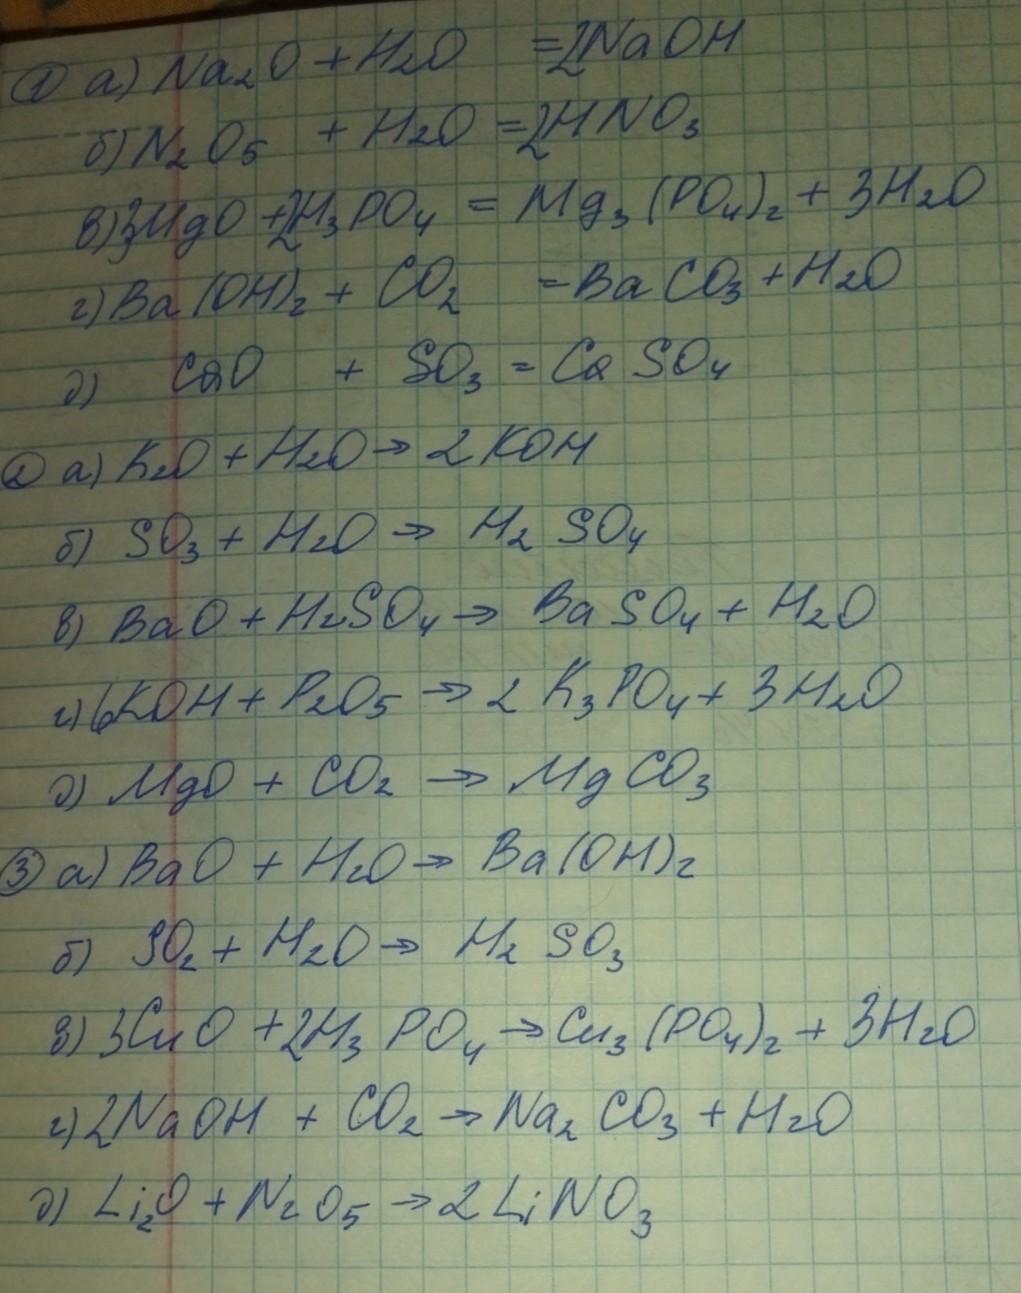 ① а) Na₂O + H₂O = 2NaOH
б) N₂O₅ + H₂O = 2HNO₃
в) 3MgO + 2H₃PO₄ = Mg₃(PO₄)₂ + 3H₂O
г) Ba(OH)₂ + CO₂ = BaCO₃ + H₂O
д) CaO + SO₃ = CaSO₄
② а) K₂O + H₂O → 2KOH
б) SO₃ + H₂O → H₂SO₄
в) BaO + H₂SO₄ → BaSO₄ + H₂O
г) 6KOH + P₂O₅ → 2K₃PO₄ + 3H₂O
д) MgO + CO₂ → MgCO₃
③ а) BaO + H₂O → Ba(OH)₂
б) SO₂ + H₂O → H₂SO₃
в) 3CuO + 2H₃PO₄ → Cu₃(PO₄)₂ + 3H₂O
г) 2NaOH + CO₂ → Na₂CO₃ + H₂O
д) Li₂O + N₂O₅ → 2LiNO₃